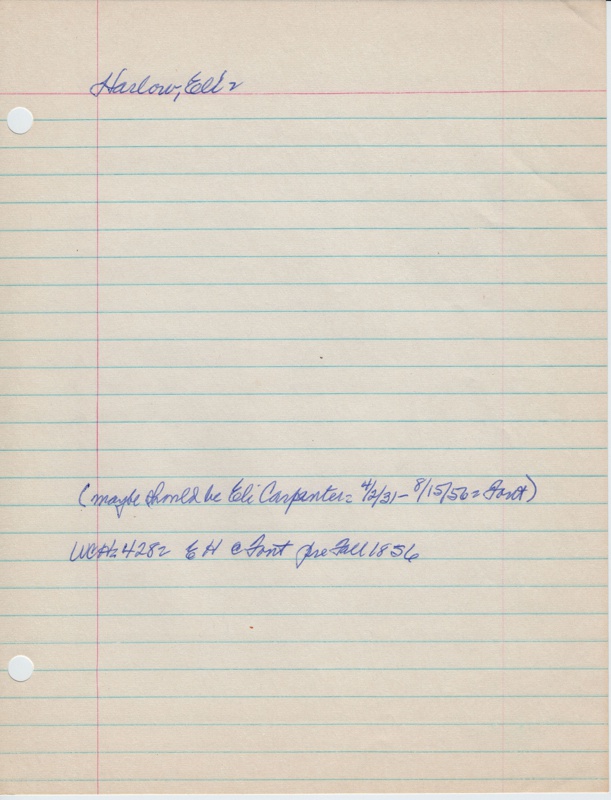 Harlow, Eli =
(maybe should be Eli Carpenter = 4/2/31 - 8/15/56 = Font)
WCH = 428 = E H c Font pre Fall 1856